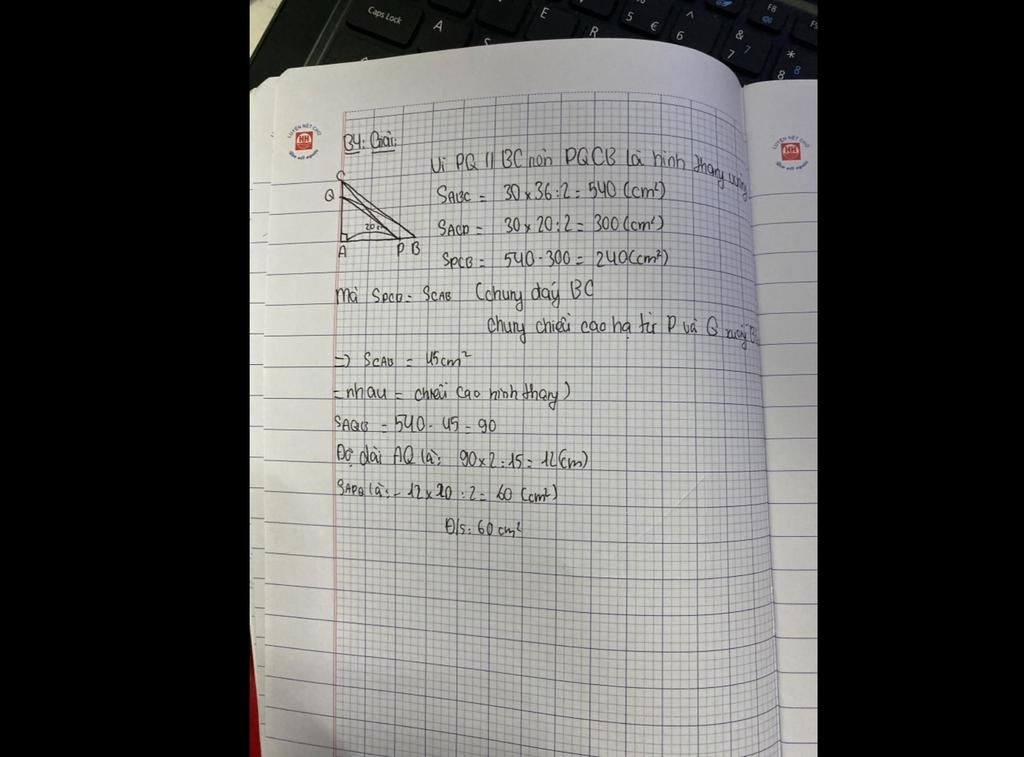 Caps Lock
A
E
R
5 €
^
6
&
7 7
*
8 8
F8
LUYỆN NÉT CHỮ
HH
B4: Giải:
Vì PQ // BC nên PQCB là hình thang vuông
C
Q
20 cm
A P B
SABC = 30 x 36 : 2 = 540 (cm²)
SACP = 30 x 20 : 2 = 300 (cm²)
SPCB = 540 - 300 = 240 (cm²)
Mà SPCQ = SCAB (chung đáy BC
chung chiều cao hạ từ P và Q xuống BC
=> SCAB = 45cm²
= nhau = chiều cao hình thang)
SAQB = 540 - 45 = 90
Độ dài AQ là: 90 x 2 : 15 = 12 (cm)
SAPQ là: 12 x 20 : 2 = 60 (cm²)
Đ/s: 60 cm²
LUYỆN NÉT CHỮ
HH